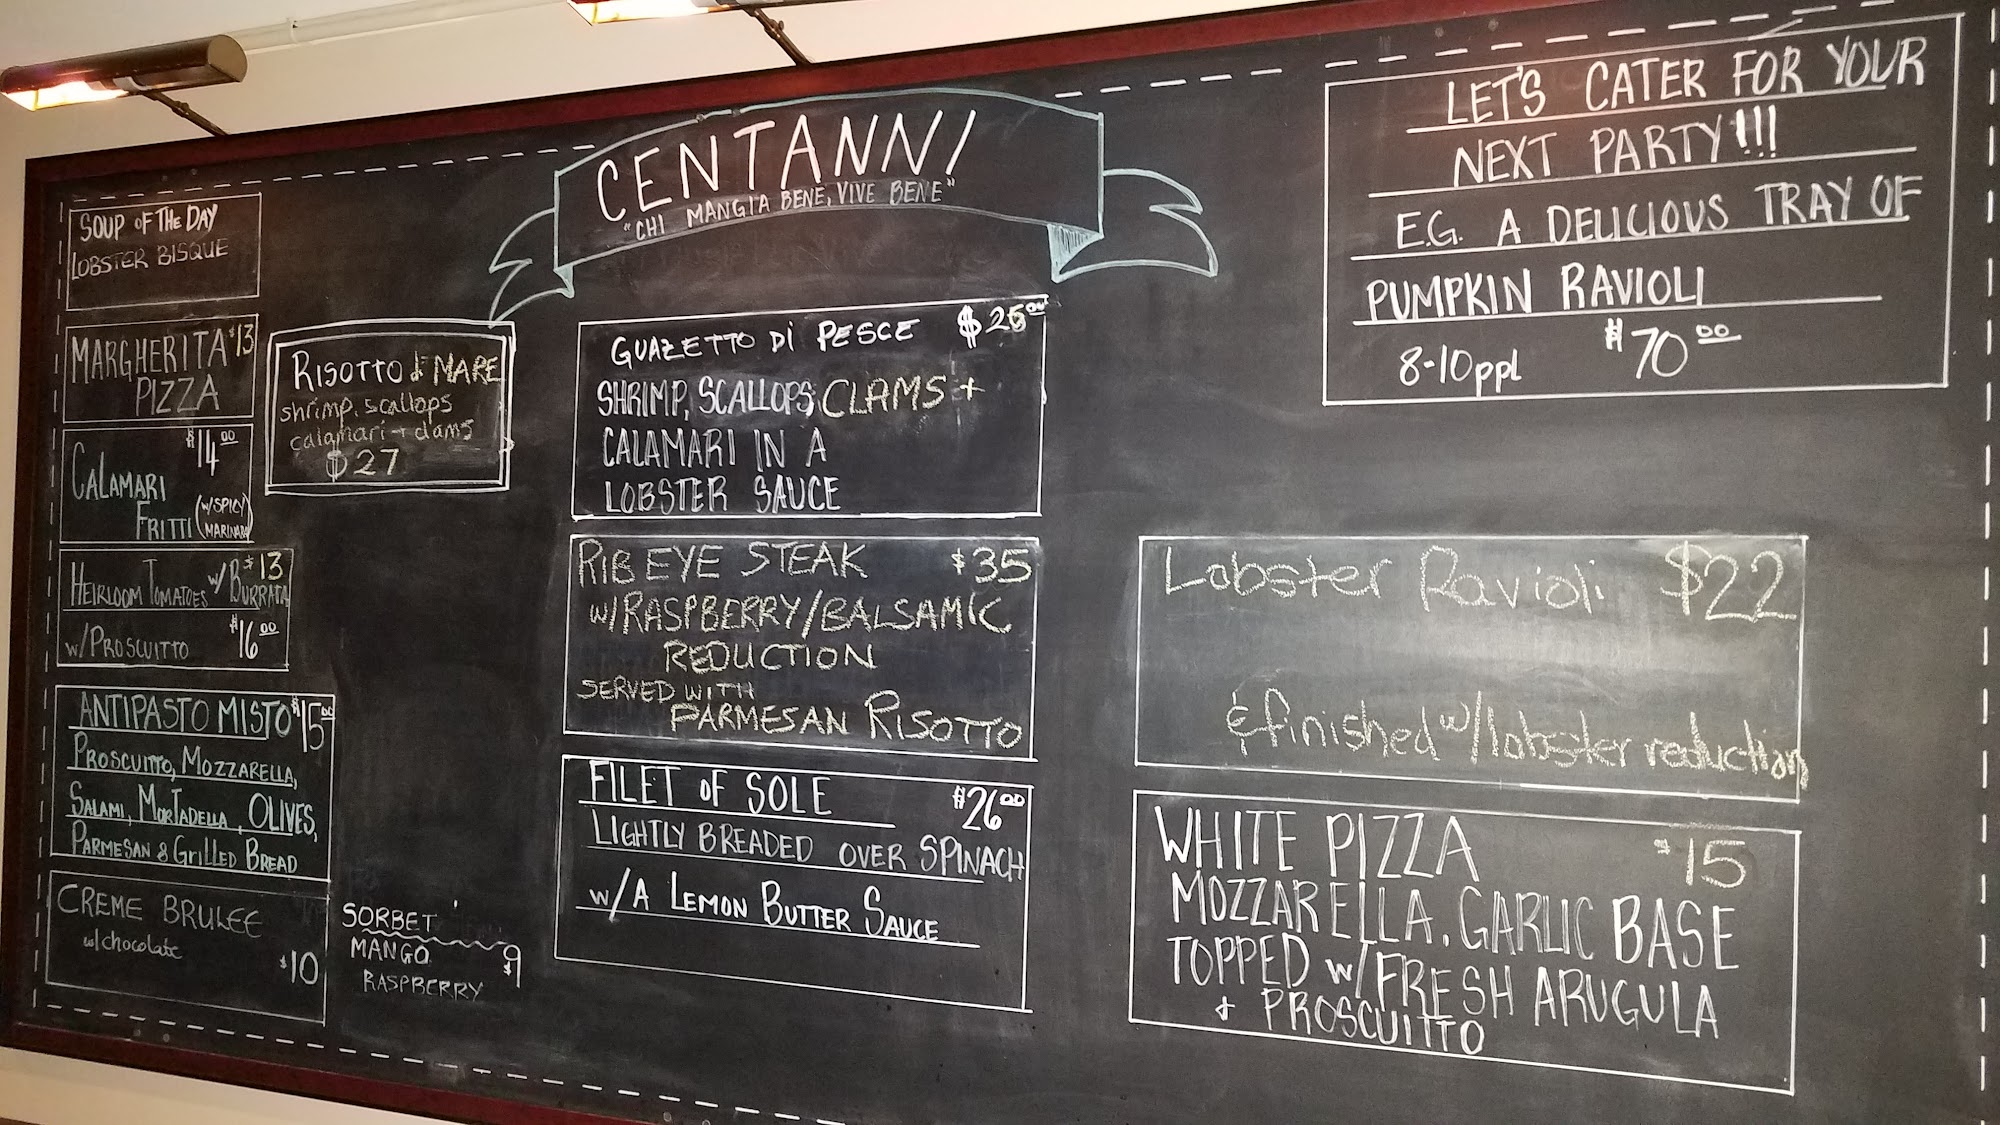 CENTANNI
"CHI MANGIA BENE, VIVE BENE"
SOUP OF THE DAY
LOBSTER BISQUE
MARGHERITA $13
PIZZA
$14.00
CALAMARI
FRITTI (W/SPICY
MARINARA)
$13
HEIRLOOM TOMATOES W/BURRATA
W/PROSCUITTO $16.00
ANTIPASTO MISTO $15.00
PROSCUITTO, MOZZARELLA,
SALAMI, MORTADELLA, OLIVES,
PARMESAN & GRILLED BREAD
CREME BRULEE
w/chocolate
$10
RISOTTO di MARE
shrimp, scallops
calamari + clams
$27
SORBET
MANGO $9
RASPBERRY
GUAZETTO Di PESCE
SHRIMP, SCALLOPS, CLAMS +
CALAMARI IN A
LOBSTER SAUCE
RIB EYE STEAK $35
W/RASPBERRY/BALSAMIC
REDUCTION
SERVED WITH
PARMESAN RISOTTO
FILET OF SOLE $26.00
LIGHTLY BREADED OVER SPINACH
W/A LEMON BUTTER SAUCE
LET'S CATER FOR YOUR
NEXT PARTY!!!
E.G. A DELICIOUS TRAY OF
PUMPKIN RAVIOLI
8-10ppl $70.00
Lobster Ravioli $22
& finished w/lobster reduction
WHITE PIZZA $15
MOZZARELLA, GARLIC BASE
TOPPED W/FRESH ARUGULA
+ PROSCUITTO